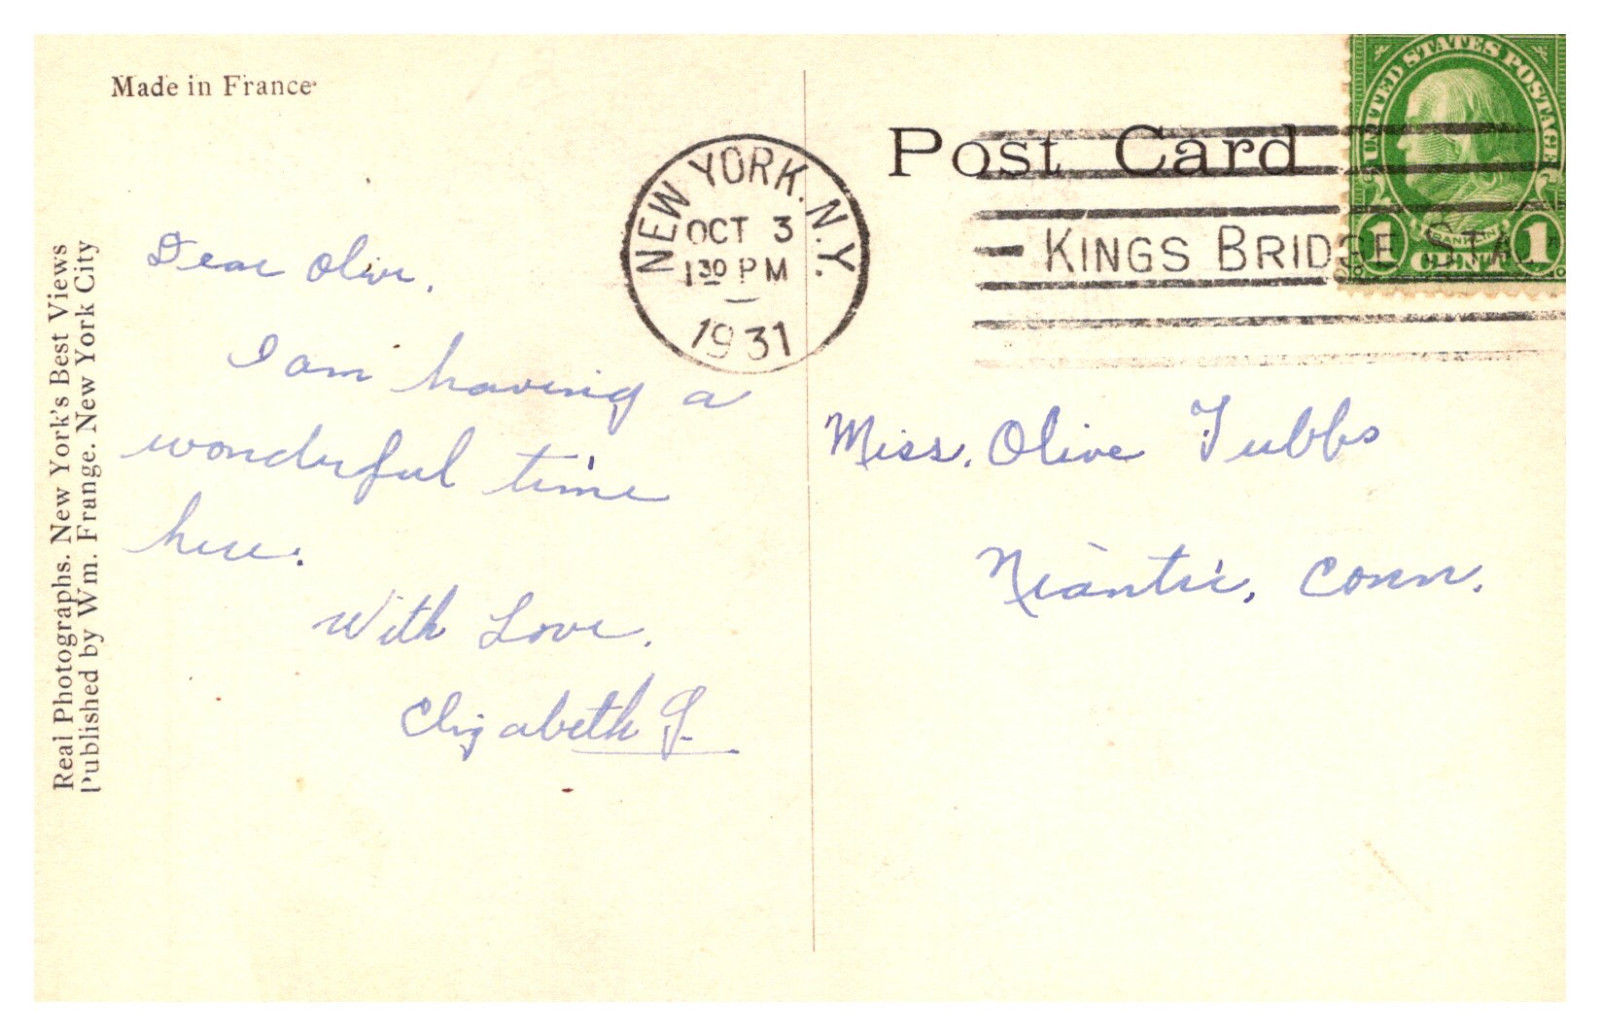 Made in France
Real Photographs. New York's Best Views
Published by Wm. Frange. New York City
Dear Olive,
I am having a
wonderful time
here.
With Love,
Elizabeth G.
NEW YORK, N.Y.
OCT 3
1 30 PM
1931
Post Card
KINGS BRIDGE STA
UNITED STATES POSTAGE
FRANKLIN
1 CENT 1
Miss. Olive Tubbs
Niantic, Conn.